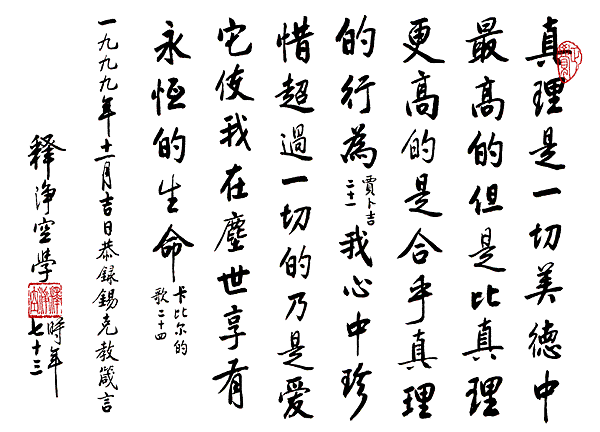 真理是一切美德中
最高的但是比真理
更高的是合乎真理
的行為賈卜吉二十一我心中珍
惜超過一切的乃是愛
它使我在塵世享有
永恒的生命卡比尔的歌二十四
一九九九年十一月吉日恭錄錫克教箴言
釋淨空學時年七十三